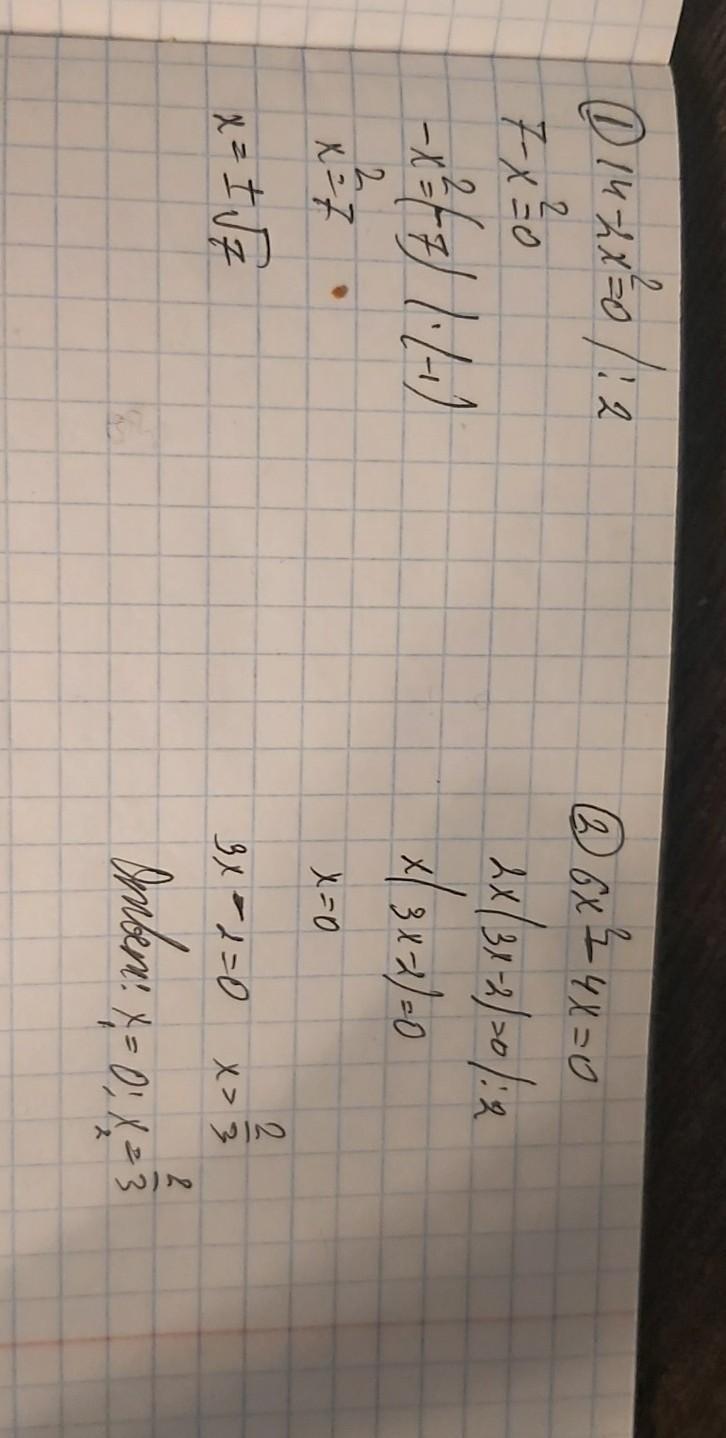 ① 14-2x²=0 /:2
7-x²=0
-x²=(-7) /·(-1)
x²=7
x=±√7
② 6x²-4x=0
2x(3x-2)=0 /:2
x(3x-2)=0
x=0
3x-2=0 x=2/3
Ответ: x₁=0; x₂=2/3